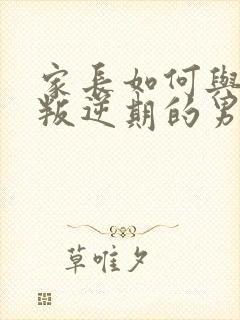 家長如何與
叛逆期的男
草唯夕